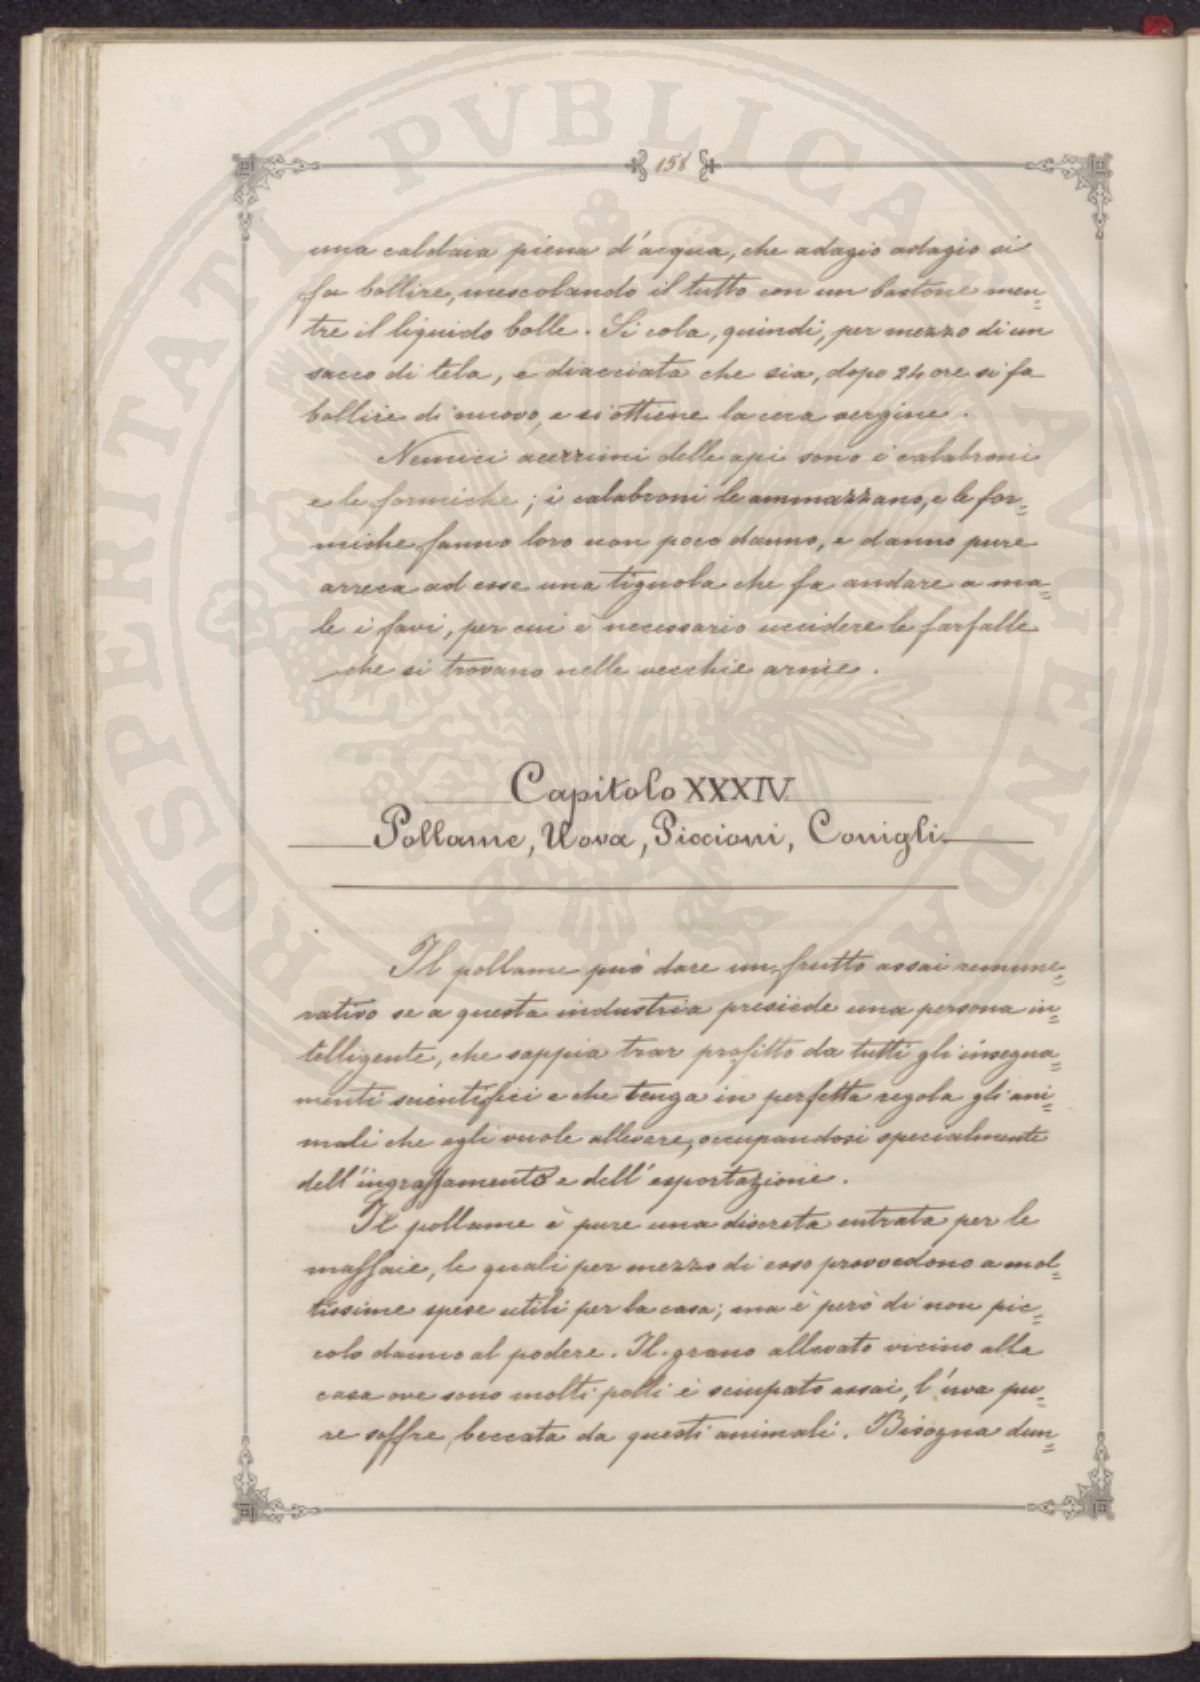 158
una caldaia piena d'acqua, che adagio adagio si
fa bollire, mescolando il tutto con un bastone men=
tre il liquido bolle. Si cola, quindi, per mezzo di un
sacco di tela, e diacciata che sia, dopo 24 ore si fa
bollire di nuovo, e si ottiene la cera vergine.
Nemici acerrimi delle api sono i calabroni
e le formiche; i calabroni le ammazzano, e le for=
miche fanno loro non poco danno, e danno pure
arreca ad esse una tignola che fa andare a ma=
le i favi, per cui è necessario uccidere le farfalle
che si trovano nelle vecchie arnie.
Capitolo XXXIV
Pollame, Uova, Piccioni, Conigli
Il pollame può dare un frutto assai remune=
rativo se a questa industria presiede una persona in=
telligente, che sappia trar profitto da tutti gli insegna=
menti scientifici e che tenga in perfetta regola gli ani=
mali che egli vuole allevare, occupandosi specialmente
dell'ingrassamento e dell'esportazione.
Il pollame è pure una discreta entrata per le
massaie, le quali per mezzo di esso provvedono a mol=
tissime spese utili per la casa; ma è però di non pic=
colo danno al podere. Il grano allevato vicino alla
casa ove sono molti polli è sciupato assai, l'uva pu=
re soffre, beccata da questi animali. Bisogna dun=
PROSPERITATI PVBLICAE AVGENDAE